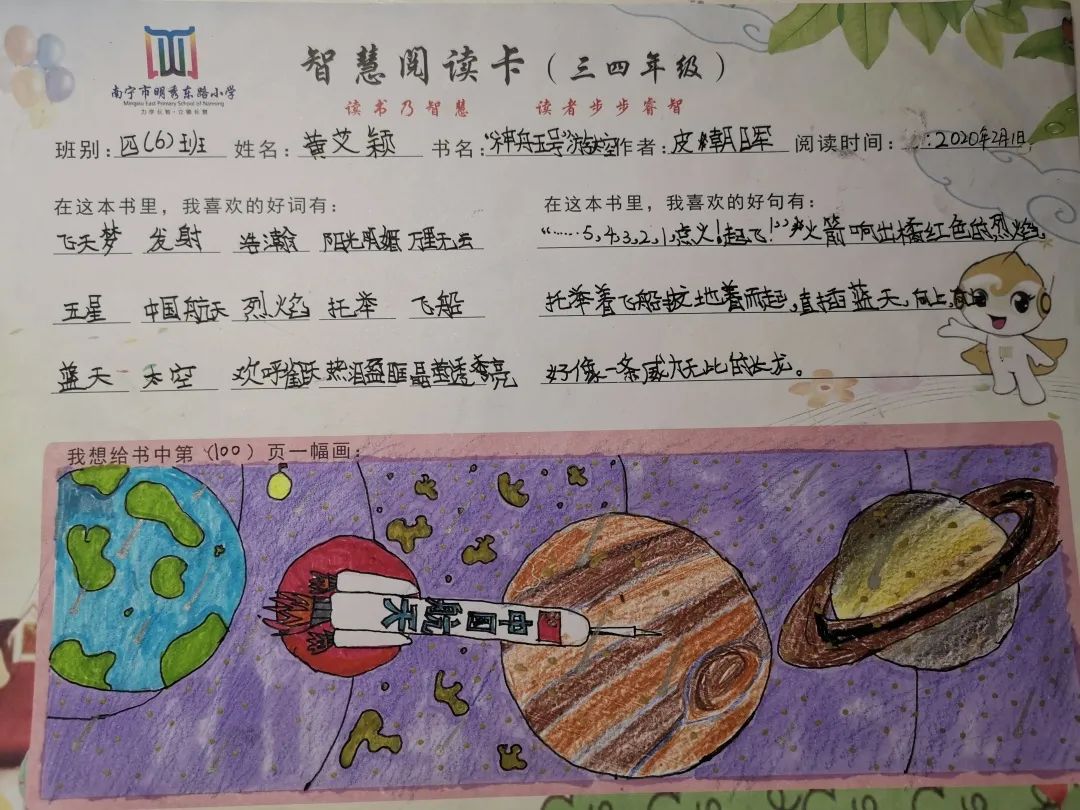 南宁市明秀东路小学
Mingxiu East Primary School of Nanning
力学长智·立德长慧
智慧阅读卡(三四年级)
读书乃智慧 读者步步睿智
班别:四(6)班 姓名:黄艾颖 书名:“神舟五号”游太空 作者:皮朝晖 阅读时间:2020年2月1日
在这本书里,我喜欢的好词有: 在这本书里,我喜欢的好句有:
飞天梦 发射 浩瀚 阳光明媚 万里无云 “……5,4,3,2,1,点火!起飞!”火箭喷出橘红色的烈焰,
五星 中国航天 烈焰 托举 飞船 托举着飞船拔地而起,直插蓝天,向上,
蓝天 太空 欢呼雀跃 热泪盈眶 晶莹透亮 好像一条威力无比的长龙。
我想给书中第(100)页一幅画:
中国航天